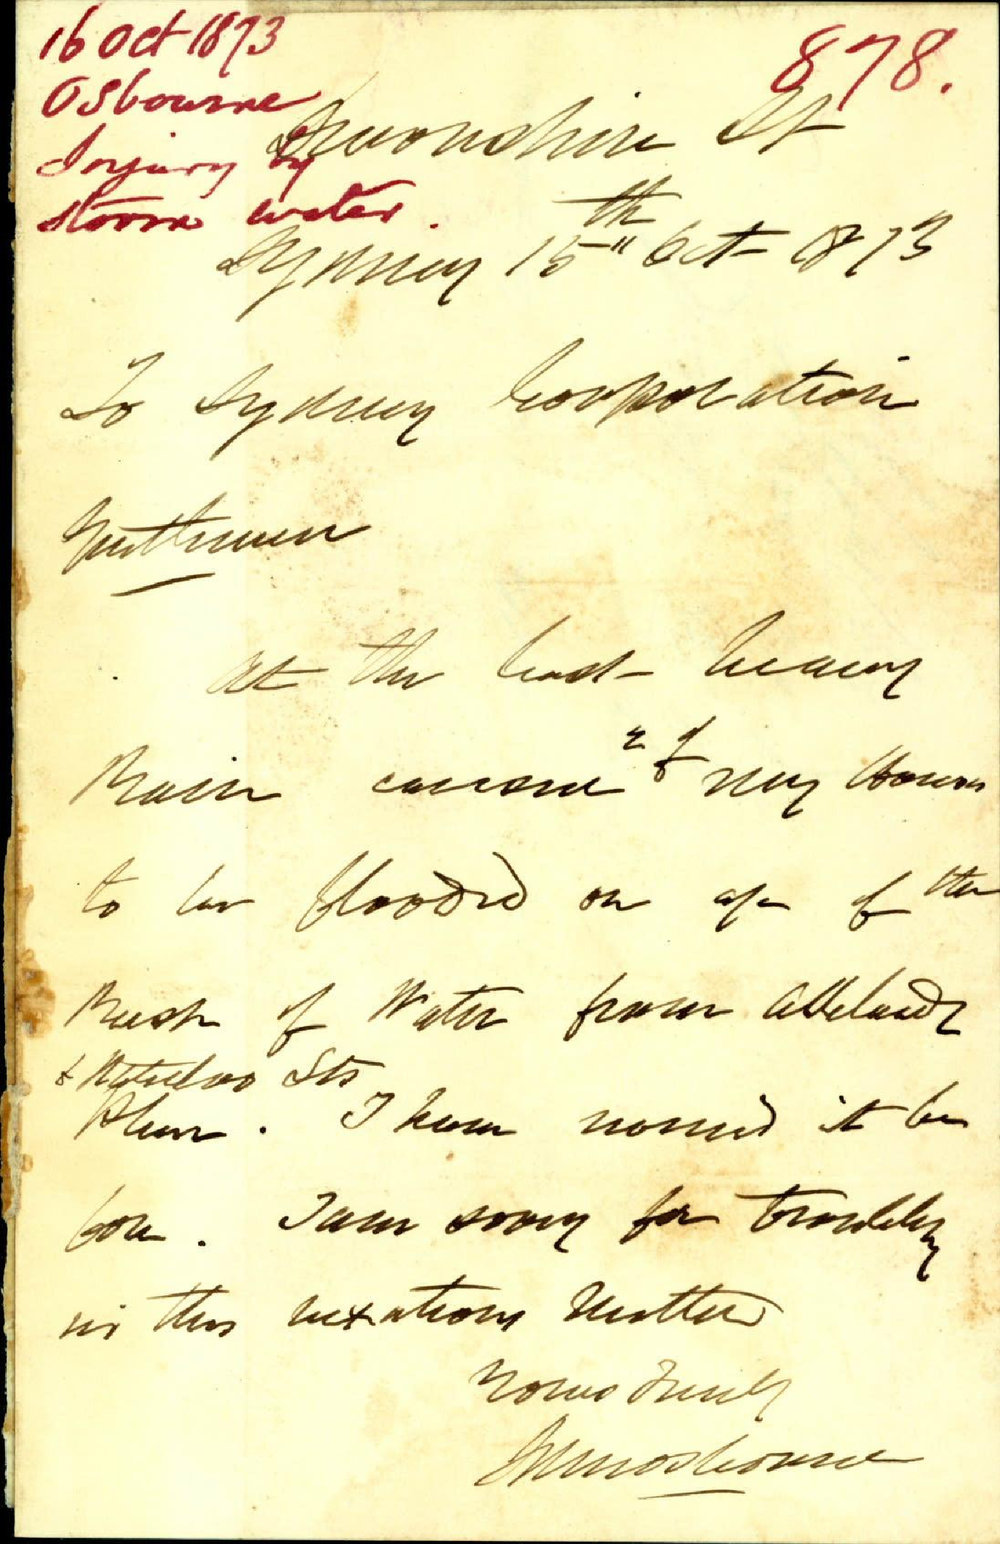 16 Oct 1873
Osbourne
Injury by
storm water.
878.
Devonshire St
Sydney 15th Oct 1873
To Sydney Corporation
Gentlemen
At the last heavy
Rain caused my House
to be flooded on a/c of the
Rush of Water from Adelaide
& Waterloo Sts
Please. I have named it be
fore. I am sorry for troubling
in this vexatious Matter
Yours Truly
Osbourne